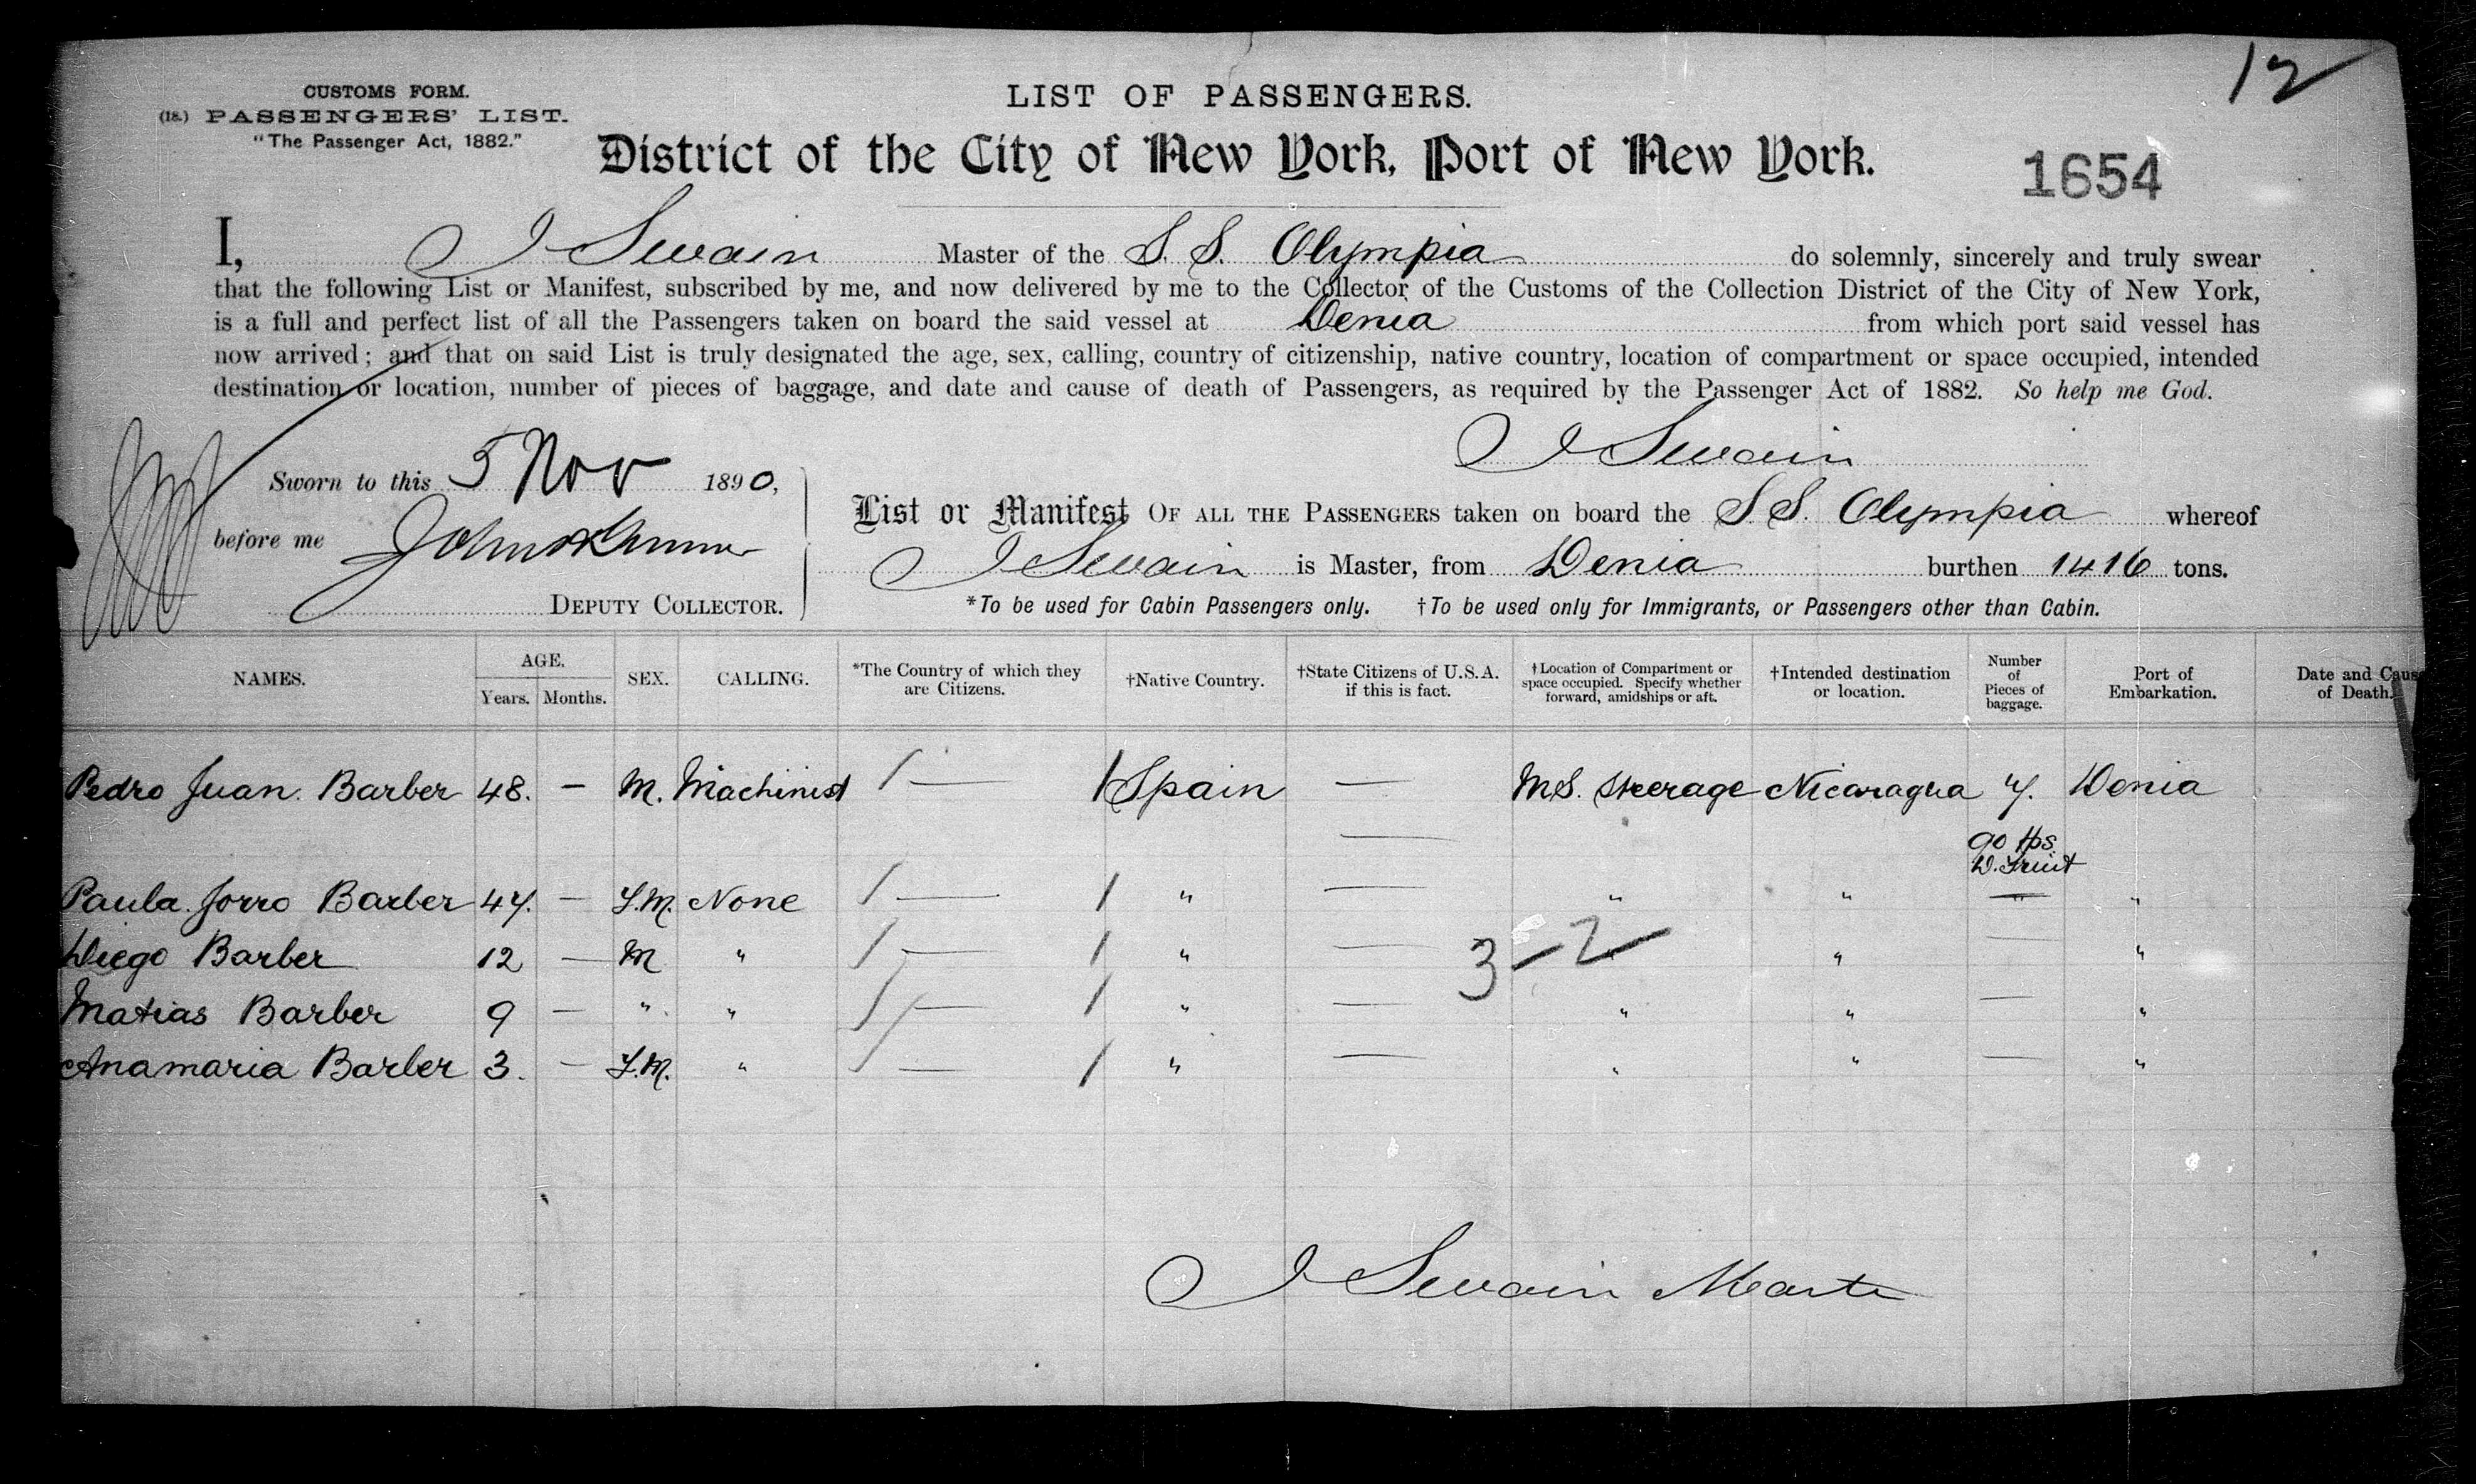 12
CUSTOMS FORM.
(18.) PASSENGERS' LIST.
"The Passenger Act, 1882."
LIST OF PASSENGERS.
District of the City of New York, Port of New York.
1654
I, J Swain Master of the S. S. Olympia do solemnly, sincerely and truly swear
that the following List or Manifest, subscribed by me, and now delivered by me to the Collector of the Customs of the Collection District of the City of New York,
is a full and perfect list of all the Passengers taken on board the said vessel at Denia from which port said vessel has
now arrived; and that on said List is truly designated the age, sex, calling, country of citizenship, native country, location of compartment or space occupied, intended
destination or location, number of pieces of baggage, and date and cause of death of Passengers, as required by the Passenger Act of 1882. So help me God.
J Swain
Sworn to this 5 Nov 1890,
before me
DEPUTY COLLECTOR.
List or Manifest OF ALL THE PASSENGERS taken on board the S S. Olympia whereof
J Swain is Master, from Denia burthen 1416 tons.
*To be used for Cabin Passengers only. †To be used only for Immigrants, or Passengers other than Cabin.
NAMES. AGE. Years. Months. SEX. CALLING. *The Country of which they are Citizens. †Native Country. †State Citizens of U.S.A. if this is fact. †Location of Compartment or space occupied. Specify whether forward, amidships or aft. †Intended destination or location. Number of Pieces of baggage. Port of Embarkation. Date and Caus of Death.
Pedro Juan. Barber 48. — M. Machinist 1 — 1 Spain — MS. Steerage Nicaragua 7. Denia
— 90 Hps.
D. Fruit
Paula Jorro Barber 47. — F.M. None 1 — 1 " — " " — "
Diego Barber 12 — M " 1 — 1 " — 3 - 2 " " — "
Matias Barber 9 — " " 1 — 1 " — " " — "
Anamaria Barber 3. — F.M. " 1 — 1 " — " " — "
J Swain Master